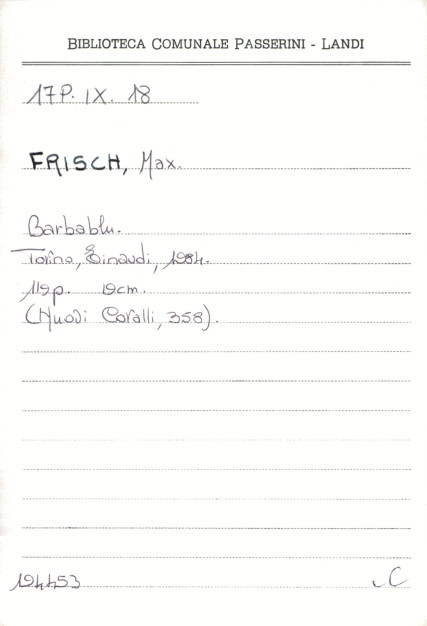 BIBLIOTECA COMUNALE PASSERINI - LANDI
17P. IX. 18
FRISCH, Max.
Barbablu.
Torino, Einaudi, 1984.
119p. 19cm.
(Nuovi Coralli, 358).
194453 C